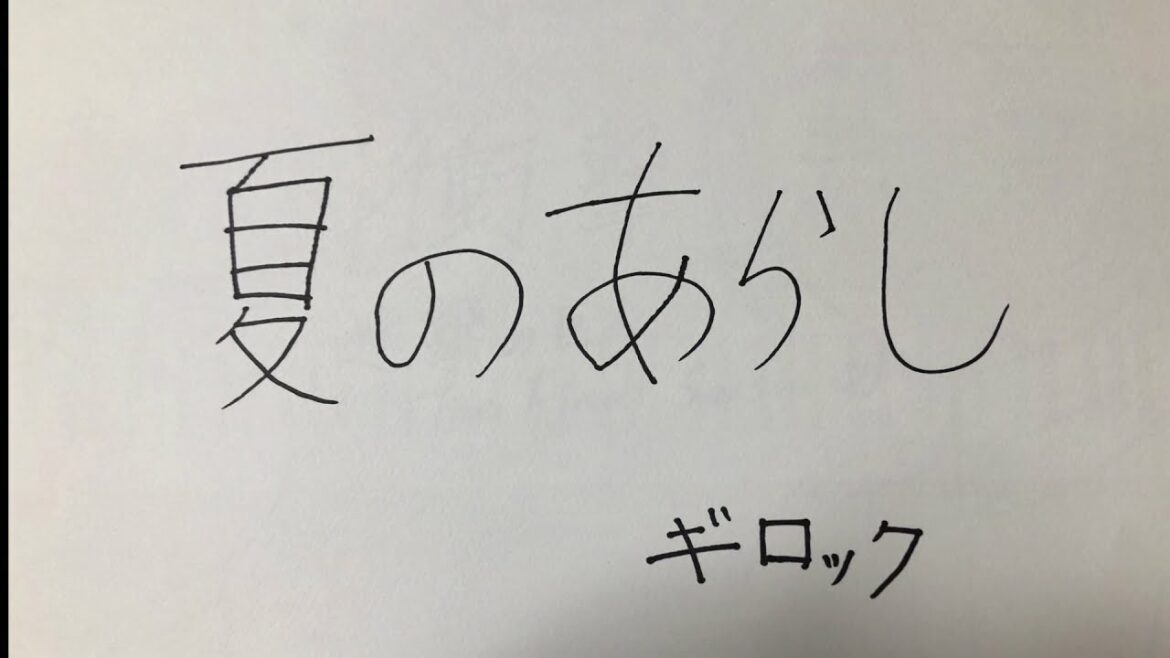 夏のあらし
ギロック